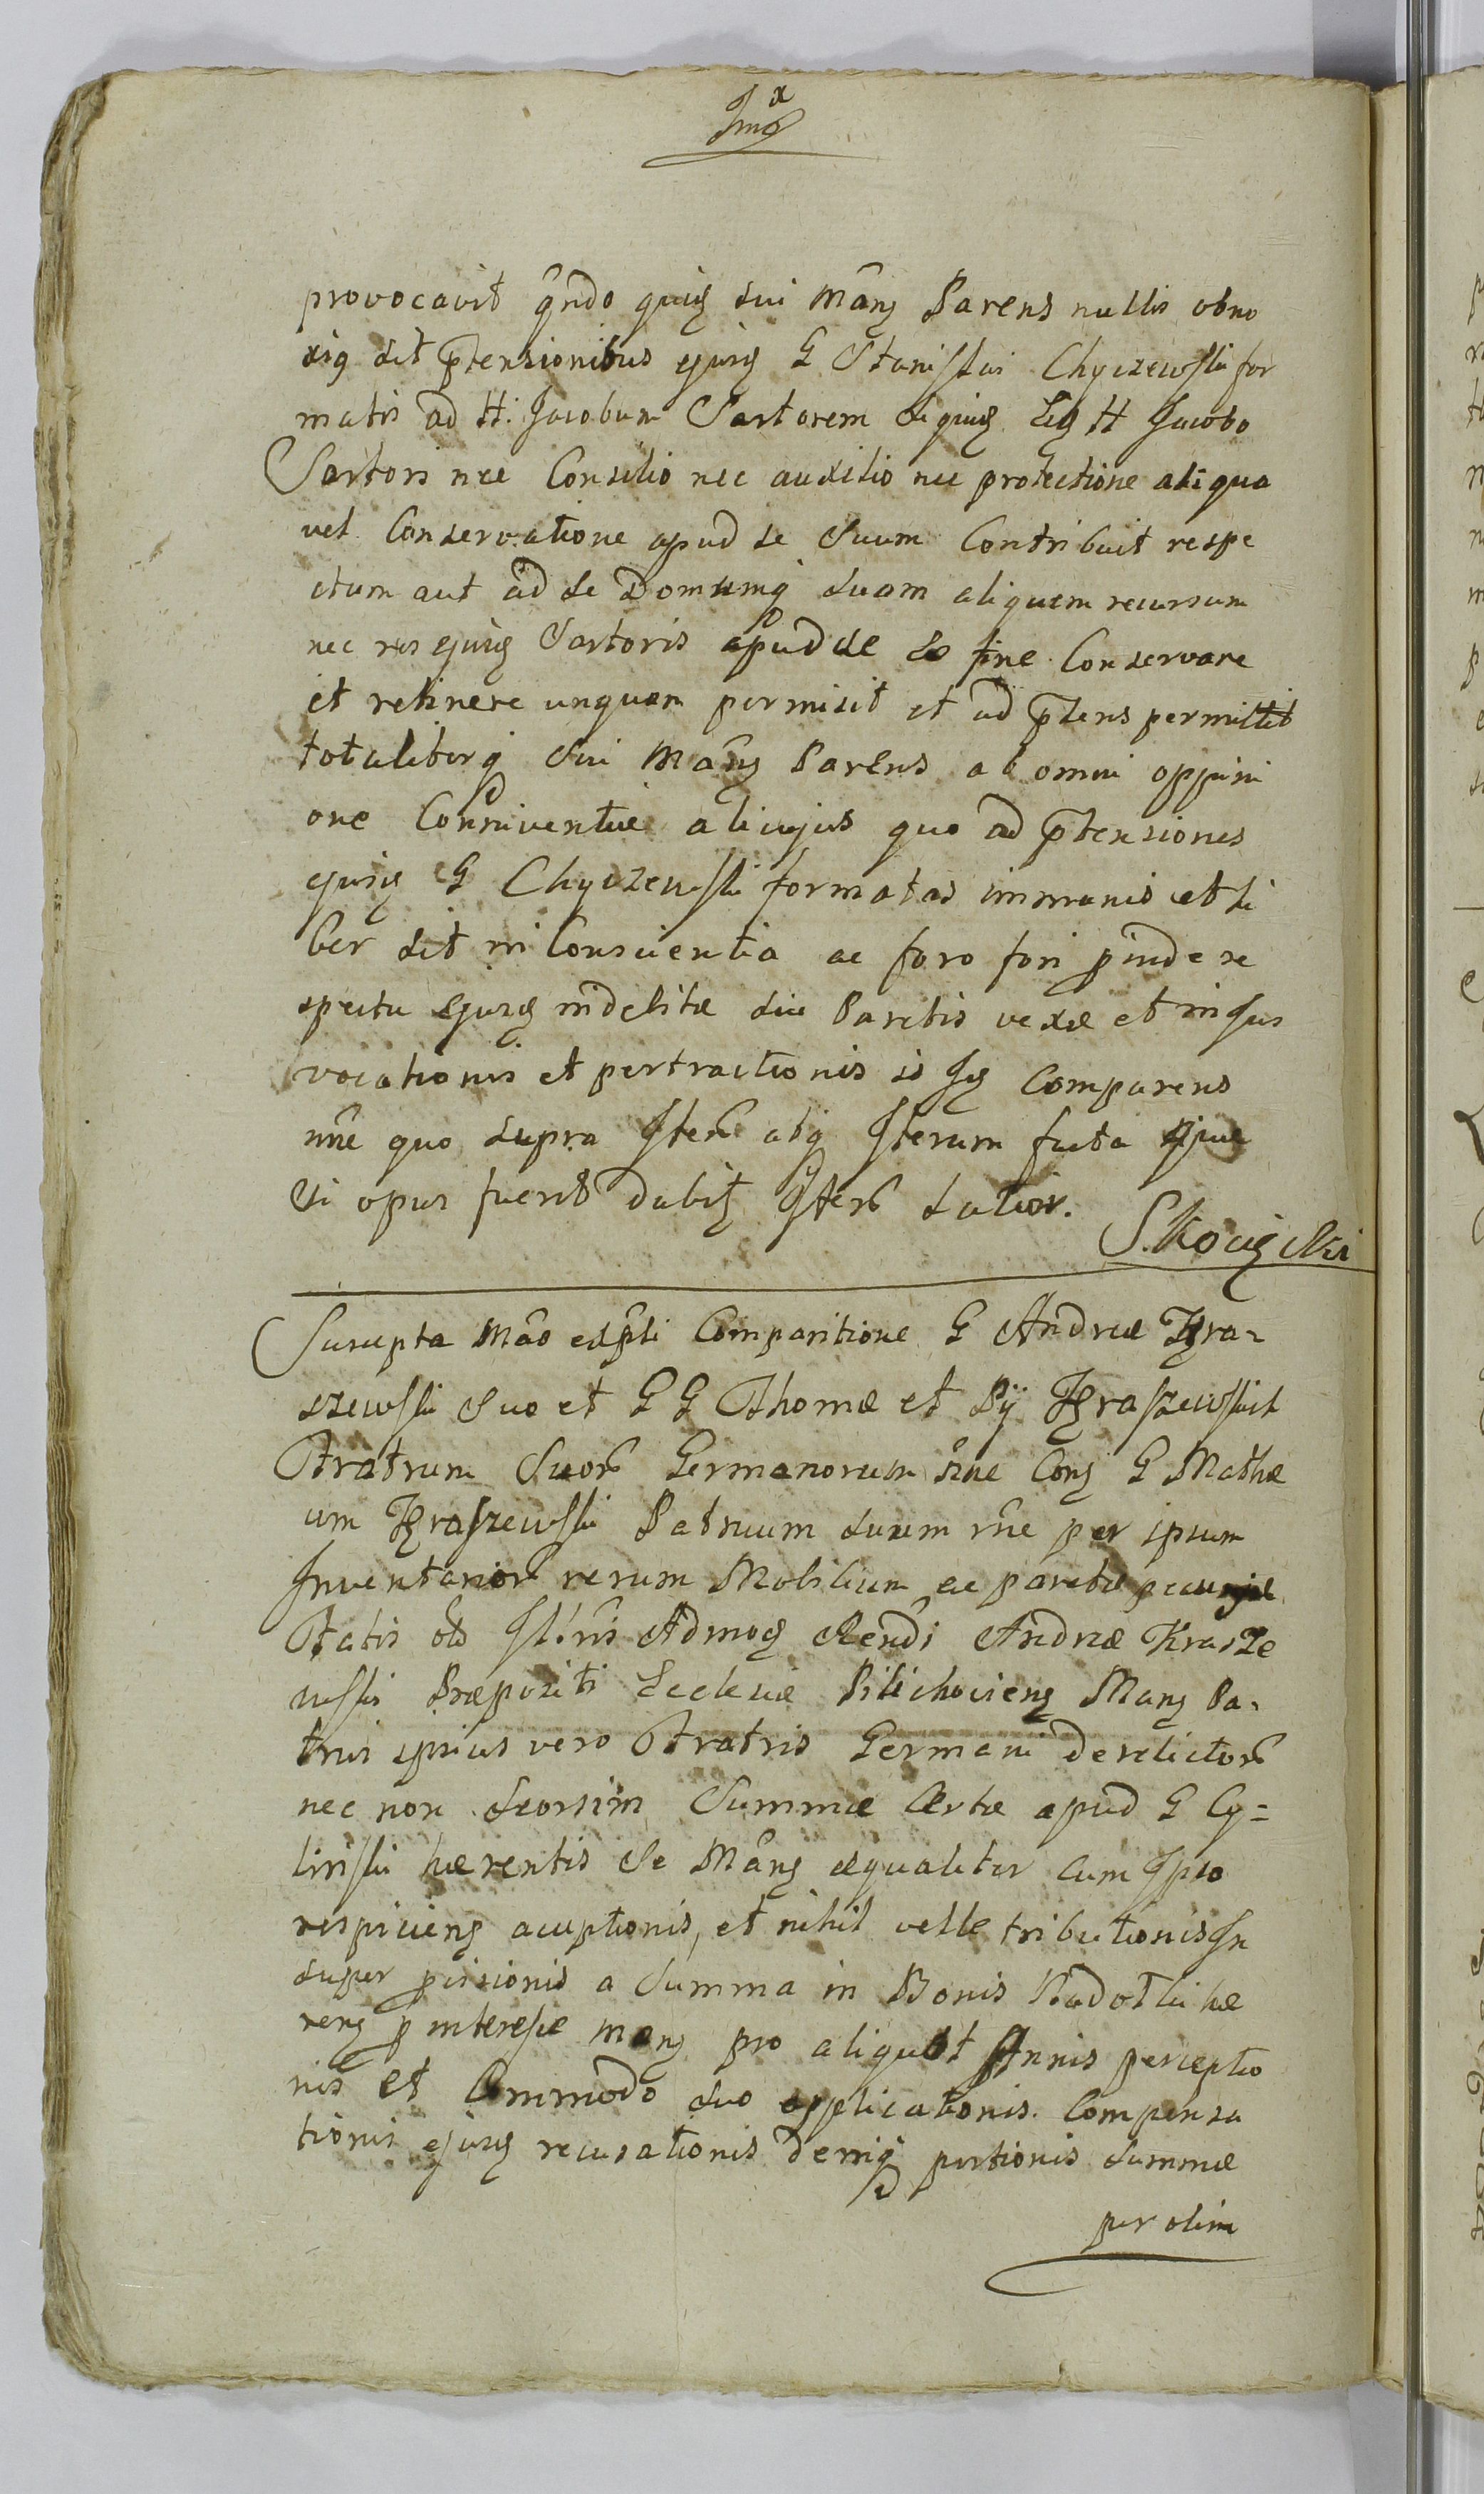 provocavit qndo quidq sui Mang Parens nullis obno
xiq sit ptensionibus ejusq G Stanislai Chyczewski for
matis ad H. Jacobum Sartorem siquidq H Jacobo
Sartori nec Consilio nec auxilio nec protectione aliqua
vel Conservatione apud se suum Contribuit respe
ctum aut ad se Domumq suam aliquem recursum
nec res ejusq Sartoris apud se eo fine Conservare
et retinere unquam permisit et ad psens permittit
totaliterq sui Mang Parens ab omni oppini
one Conniventiæ alicujus quo ad ptensiones
ejusq G Chyczewski formatas immunis et li
ber sit in Conscientia ac foro fori pinde re
spectu ejusq indebitæ sui Partis vexæ et in Jus
vocationis et pertractionis is Iq Comparens
nne quo supra Iteru atq Iterum facta quæ
si opus fuerit dabit Iteru latior.
S. Kocięcki
Suscepta Mao expsti Comparitione G Andreæ Kra=
szewski suo et G G Thomæ et Pij Kraszewskich
Fratrum Suoru Germanorum nne Cong G Mathæ
um Kraszewski Patruum suum rne per ipsum
Inventarioru rerum Mobilium ac paratæ pecuniæ
Fatis oli Admoq Rendi Andreæ Krasze
wski Præpositi Ecclesiæ Pilichovieng Mang Pa=
trui ipsius vero Fratris Germani derelictoru
nec non seorsim Summæ Certæ apud G Cy=
linski hærentis se Mang æqualiter cum Ipso
respicieng acceptionis, et nihil velle tributionis In
super pcisionis a Summa in Bonis Radotki hæ
reng p interesse mang pro aliquot Annis perceptio
nis et Commodo suo applicationis. Compensa
tionis ejusq recusationis deniq portionis Summæ
per olim